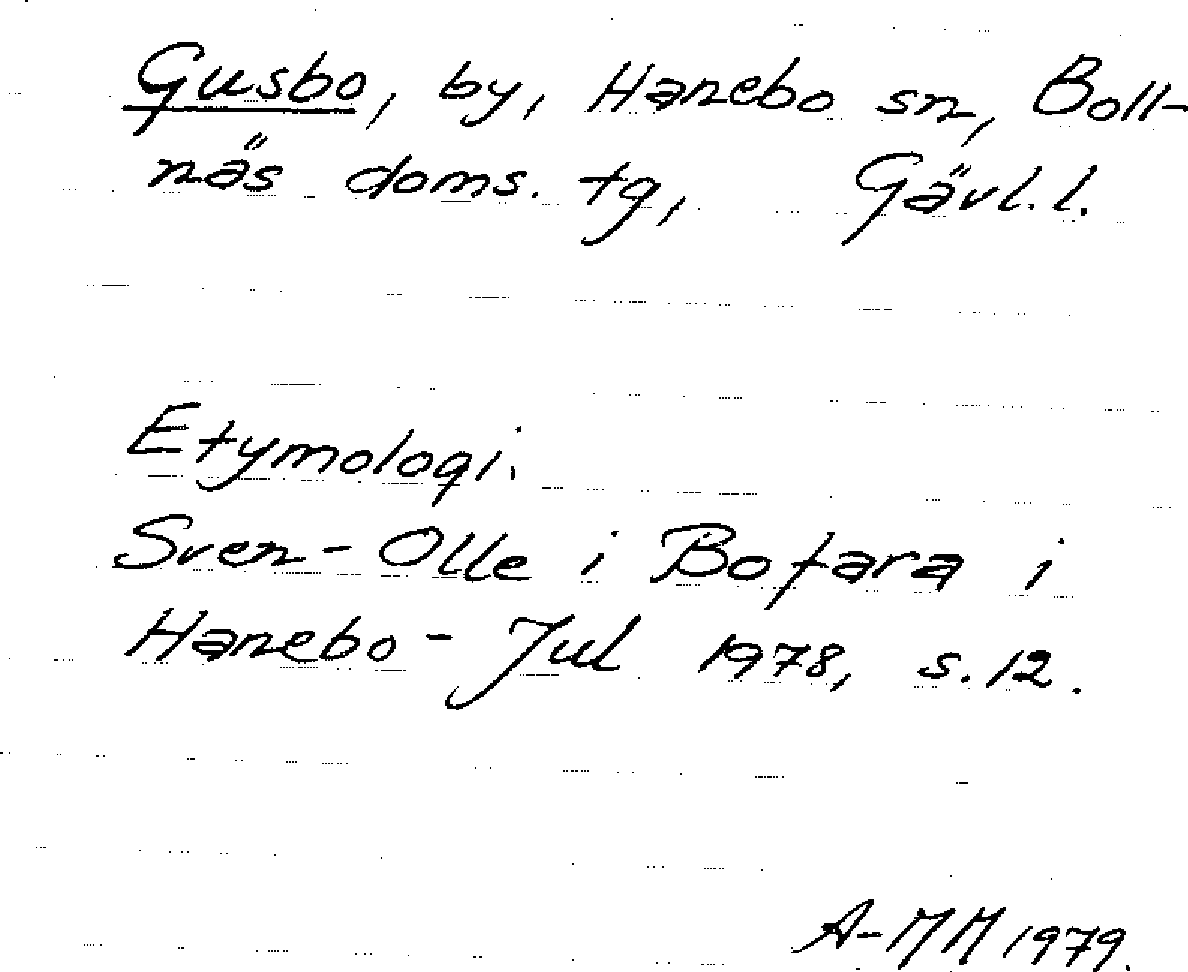 Gusbo, by, Hanebo sn, Boll-
näs doms. tg, Gävl.l.
Etymologi.
Sven-Olle i Bofara i
Hanebo- Jul 1978, s.12.
A-MM 1979.